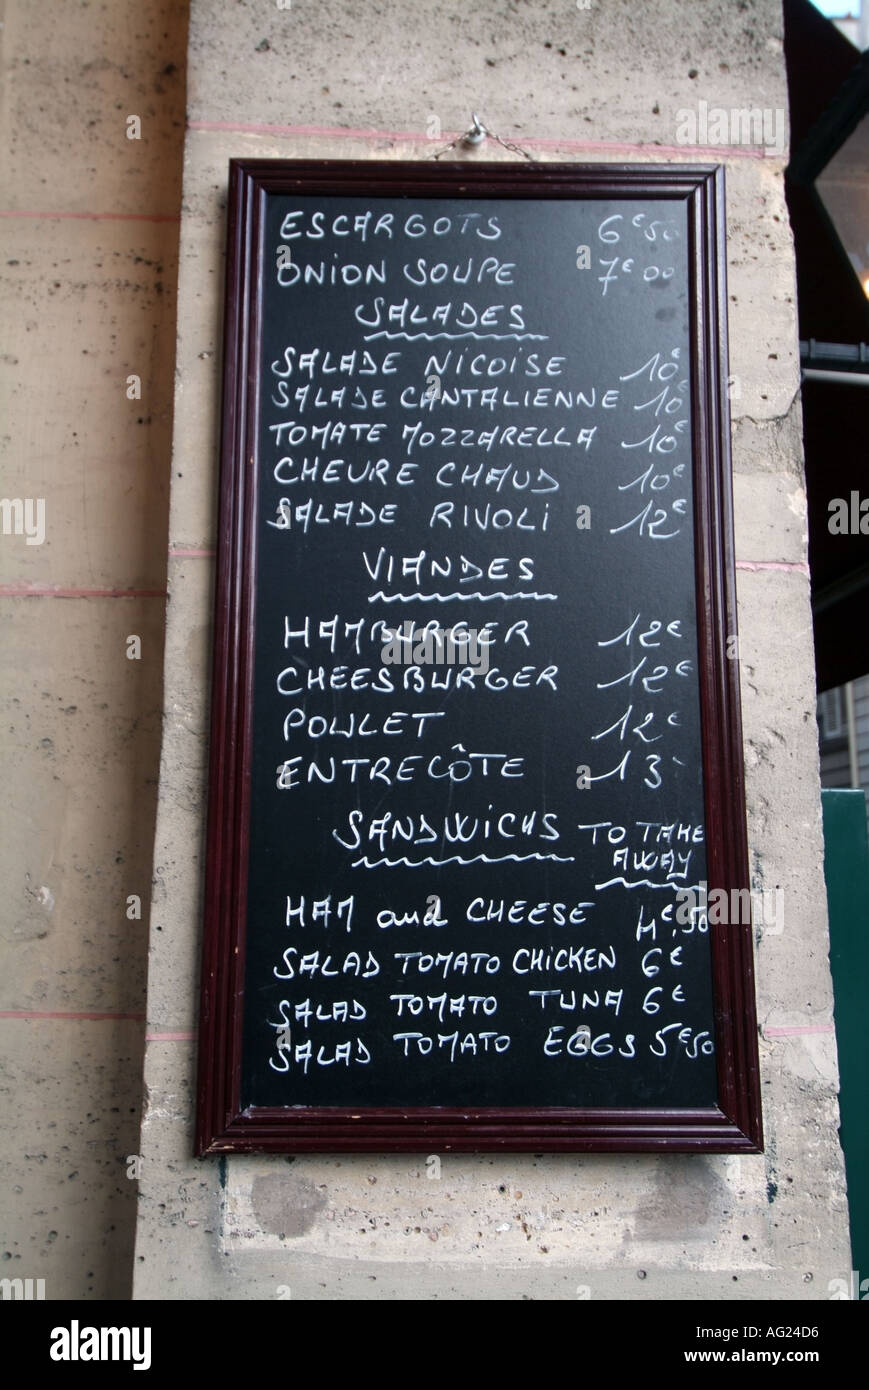 ESCARGOTS 6€50
ONION SOUPE 7€00
SALADES
SALADE NICOISE 10€
SALADE CANTALIENNE 10€
TOMATE MOZZARELLA 10€
CHEVRE CHAUD 10€
SALADE RIVOLI 12€
VIANDES
HAMBURGER 12€
CHEESBURGER 12€
POULET 12€
ENTRECÔTE 13
SANDWICHS TO TAKE
AWAY
HAM and CHEESE 4€,50
SALAD TOMATO CHICKEN 6€
SALAD TOMATO TUNA 6€
SALAD TOMATO EGGS 5€50
alamy stock photo
AG24D6
www.alamy.com